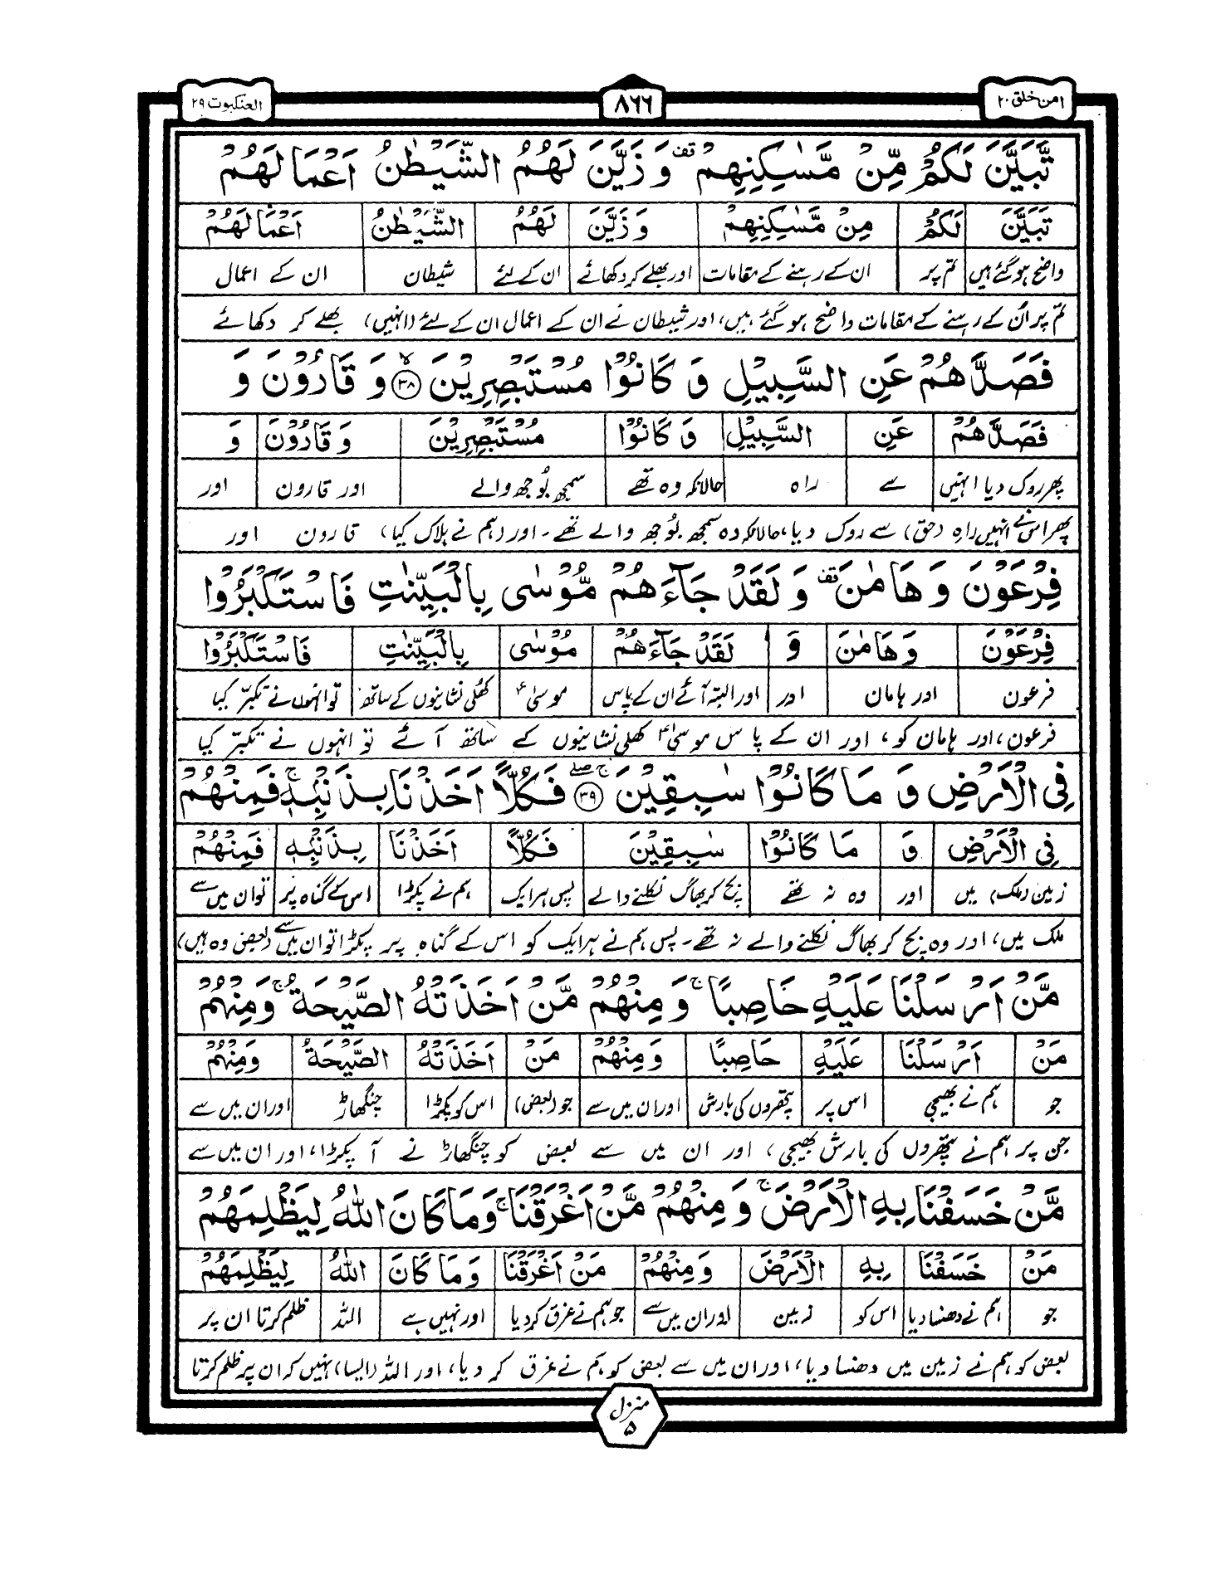 امن خلق ۲۰ ۸۶۶ العنکبوت ۲۹
تَّبَيَّنَ لَكُمْ مِّنْ مَّسٰكِنِهِمْ ۫ قف وَ زَيَّنَ لَهُمُ الشَّيْطٰنُ اَعْمَالَهُمْ
تَبَيَّنَ لَكُمْ مِنْ مَّسٰكِنِهِمْ وَ زَيَّنَ لَهُمُ الشَّيْطٰنُ اَعْمَالَهُمْ
واضح ہوگئے ہیں تم پر ان کے رہنے کے مقامات اور بھلے کر دکھائے ان کے لئے شیطان ان کے اعمال
تم پر اُن کے رہنے کے مقامات واضح ہو گئے ہیں، اور شیطان نے ان کے اعمال ان کے لئے (انہیں) بھلے کر دکھائے
فَصَدَّهُمْ عَنِ السَّبِيْلِ وَ كَانُوْا مُسْتَبْصِرِيْنَ ۙ ﴿۳۸﴾ وَ قَارُوْنَ وَ
فَصَدَّهُمْ عَنِ السَّبِيْلِ وَ كَانُوْا مُسْتَبْصِرِيْنَ وَ قَارُوْنَ وَ
پھر روک دیا انہیں سے راہ حالانکہ وہ تھے سمجھ بُوجھ والے اور قارون اور
پھر اس نے انہیں راہِ (حق) سے روک دیا، حالانکہ وہ سمجھ بُوجھ والے تھے۔ اور (ہم نے ہلاک کیا) قارون اور
فِرْعَوْنَ وَ هَامٰنَ ۫ قف وَ لَقَدْ جَآءَهُمْ مُّوْسٰى بِالْبَيِّنٰتِ فَاسْتَكْبَرُوْا
فِرْعَوْنَ وَ هَامٰنَ وَ لَقَدْ جَآءَهُمْ مُوْسٰى بِالْبَيِّنٰتِ فَاسْتَكْبَرُوْا
فرعون اور ہامان اور اور البتہ آئے ان کے پاس موسیٰؑ کھلی نشانیوں کے ساتھ تو انہوں نے تکبّر کیا
فرعون، اور ہامان کو، اور ان کے پاس موسیٰؑ کھلی نشانیوں کے ساتھ آئے تو انہوں نے تکبّر کیا
فِى الْاَرْضِ وَ مَا كَانُوْا سٰبِقِيْنَ ۚۖ ﴿۳۹﴾ فَكُلًّا اَخَذْنَا بِذَنْۢبِهٖ ۚ فَمِنْهُمْ
فِى الْاَرْضِ وَ مَا كَانُوْا سٰبِقِيْنَ فَكُلًّا اَخَذْنَا بِذَنْۢبِهٖ فَمِنْهُمْ
زمین (ملک) میں اور وہ نہ تھے بچ کر بھاگ نکلنے والے پس ہر ایک ہم نے پکڑا اس کے گناہ پر تو ان میں سے
ملک میں، اور وہ بچ کر بھاگ نکلنے والے نہ تھے۔ پس ہم نے ہر ایک کو اس کے گناہ پر پکڑا تو ان میں سے (بعض وہ ہیں)
مَّنْ اَرْسَلْنَا عَلَيْهِ حَاصِبًا ۚ وَ مِنْهُمْ مَّنْ اَخَذَتْهُ الصَّيْحَةُ ۚ وَمِنْهُمْ
مَنْ اَرْسَلْنَا عَلَيْهِ حَاصِبًا وَ مِنْهُمْ مَنْ اَخَذَتْهُ الصَّيْحَةُ وَمِنْهُمْ
جو ہم نے بھیجی اس پر پتھروں کی بارش اور ان میں سے جو (بعض) اس کو پکڑا چنگھاڑ اور ان میں سے
جن پر ہم نے پتھروں کی بارش بھیجی، اور ان میں سے بعض کو چنگھاڑ نے آ پکڑا، اور ان میں سے
مَّنْ خَسَفْنَا بِهِ الْاَرْضَ ۚ وَ مِنْهُمْ مَّنْ اَغْرَقْنَا ۚ وَمَا كَانَ اللّٰهُ لِيَظْلِمَهُمْ
مَنْ خَسَفْنَا بِهِ الْاَرْضَ وَ مِنْهُمْ مَنْ اَغْرَقْنَا وَمَا كَانَ اللّٰهُ لِيَظْلِمَهُمْ
جو ہم نے دھنسا دیا اس کو زمین اور ان میں سے جو ہم نے غرق کر دیا اور نہیں ہے اللہ ظلم کرتا ان پر
بعض کو ہم نے زمین میں دھنسا دیا، اور ان میں سے بعض کو ہم نے غرق کر دیا، اور اللہ (ایسا) نہیں کہ ان پر ظلم کرتا
منزل ۵